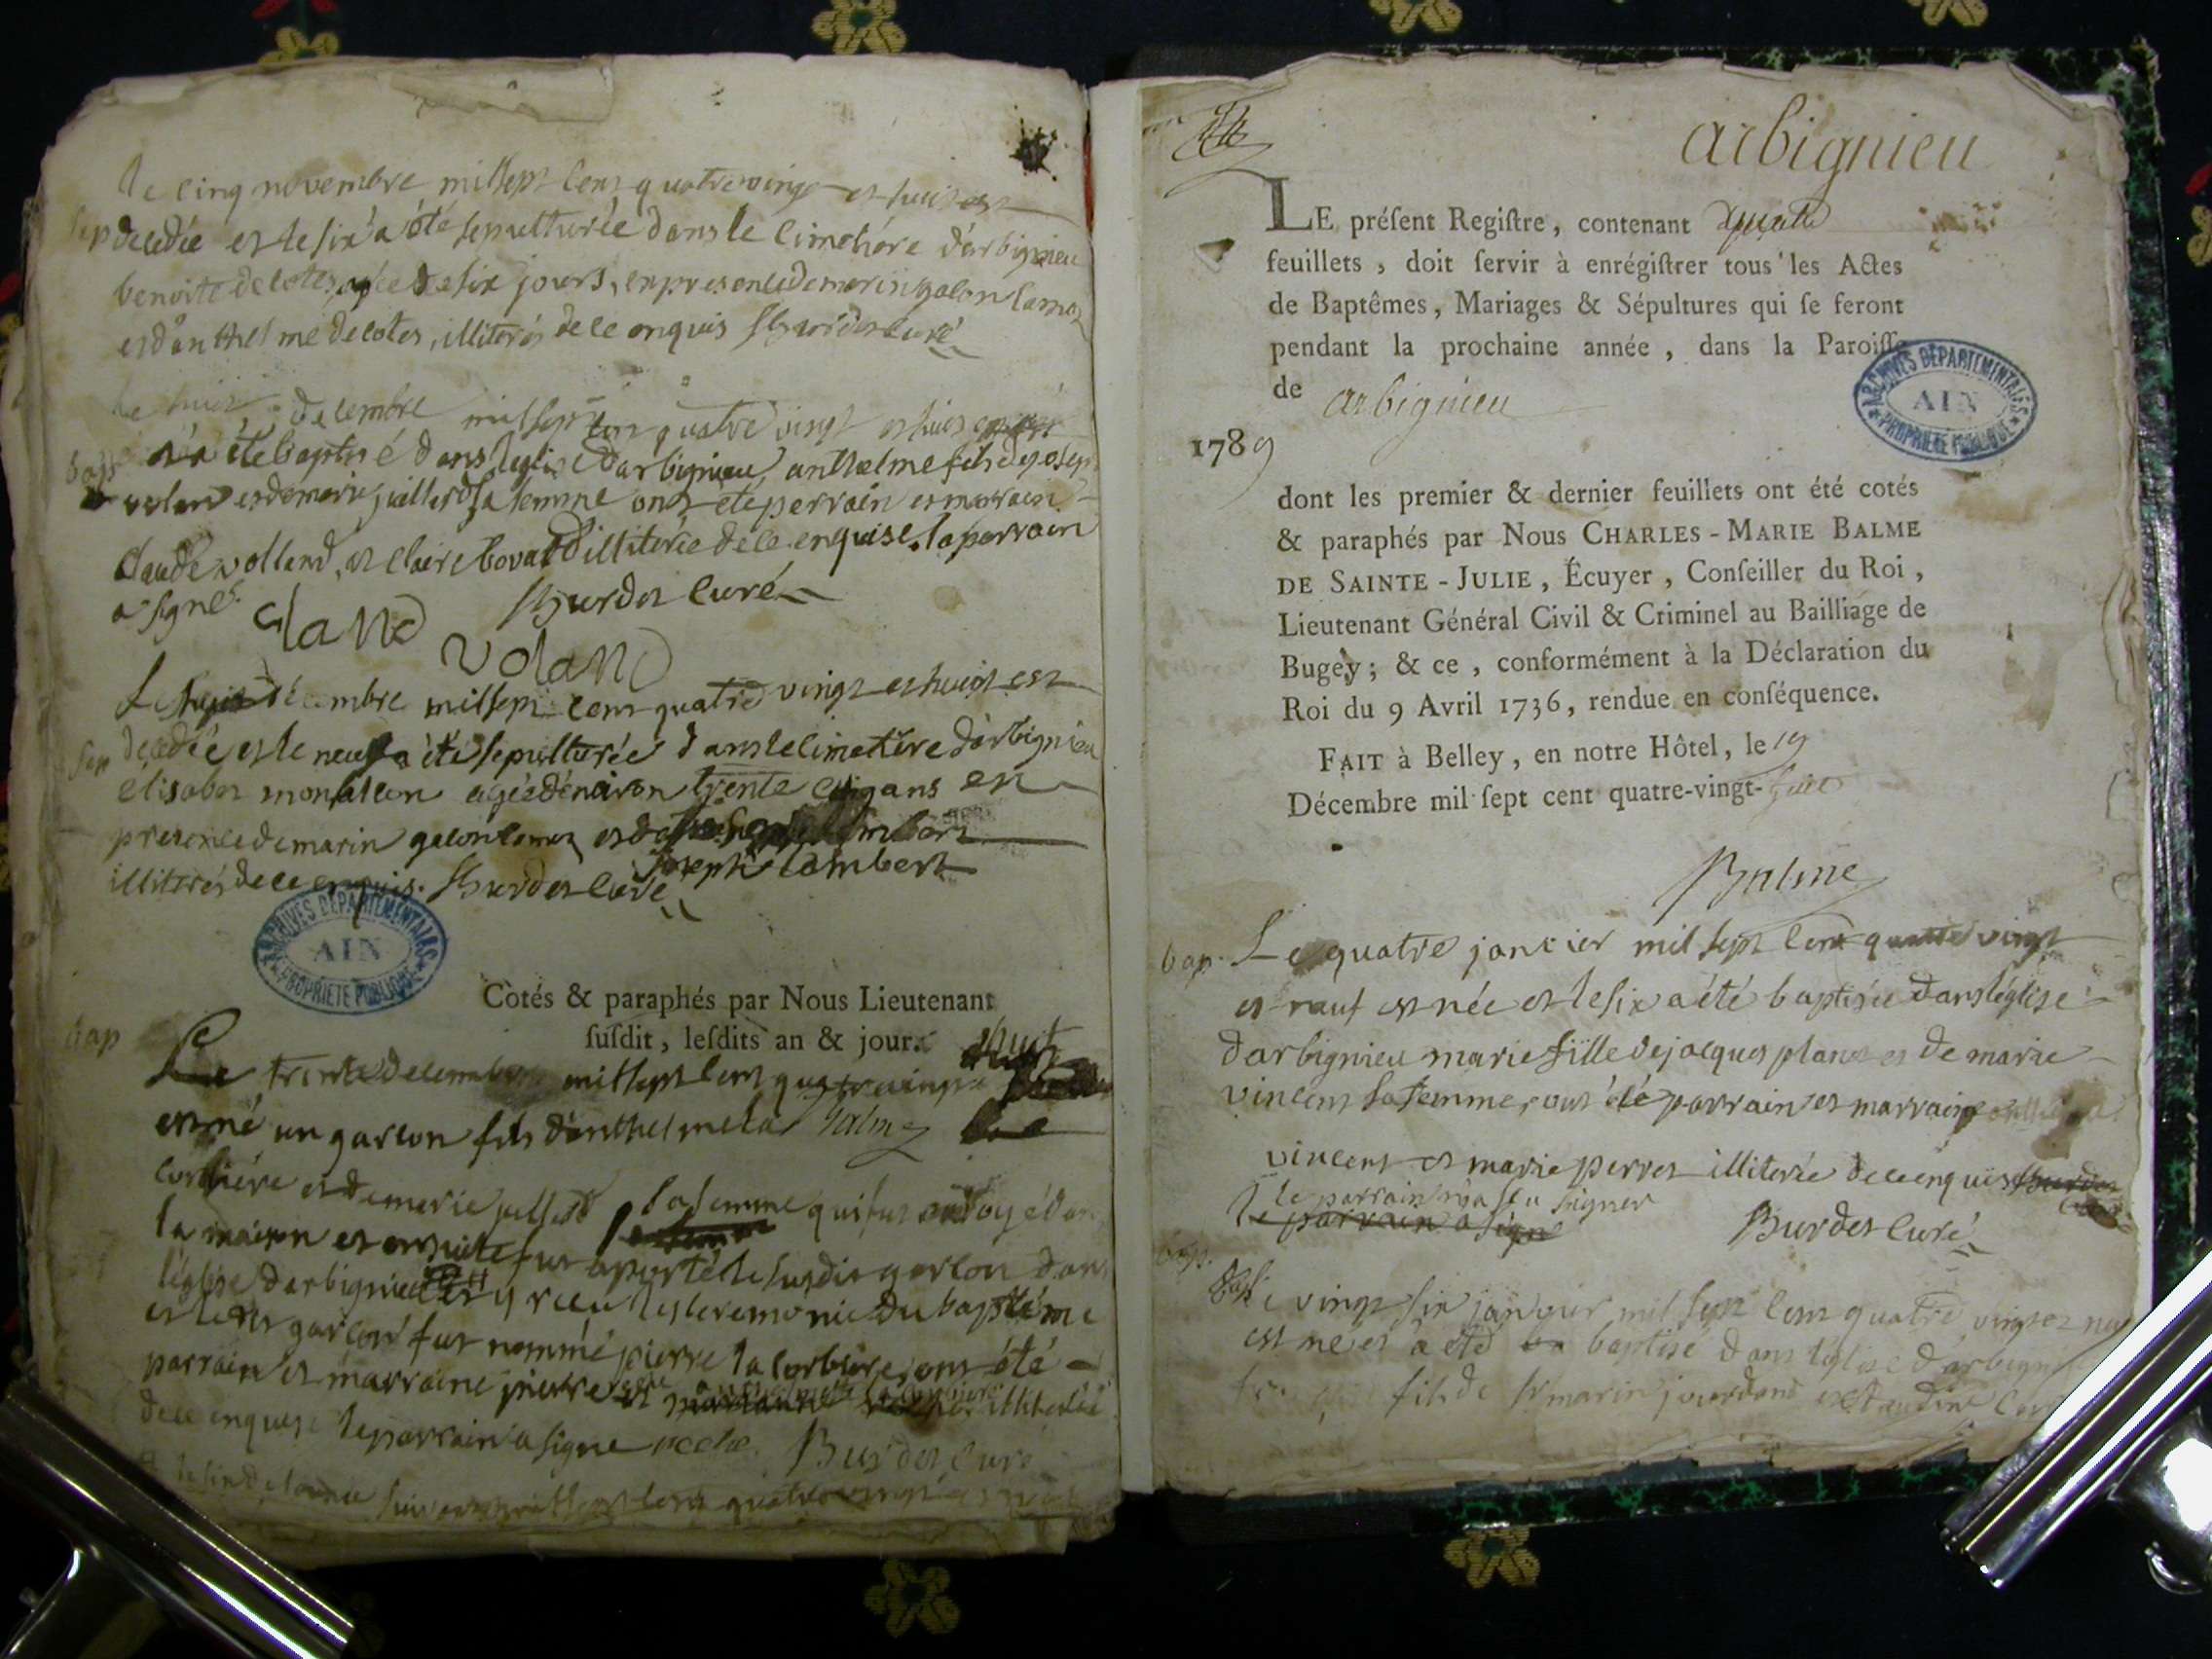 Le cinq novembre mil sept cent quatre vingt et huit est
Sep decedée et le six a été sepulturée dans le cimetiére d'arbignieu
benoite decotes agée de six jours, en presence de marin galon
et d'anthelme decotes, illiterés de ce enquis Burdet curé
Le huit decembre mil sept cent quatre vingt et huit est
bap né a été baptisé dans l'eglise d'arbignieu anthelme fils de joseph
volan et de marie juillerd sa femme ont été perrain et marraine
claude volland, et claire bovard illiterée de ce enquise, la parrain
a signé Burdet curé
claud voland
Le huit décembre mil sept cent quatre vingt et huit est
Sep decedée et le neuf a été sepulturée dans le cimetiere d'arbignieu
elisabet monfalcon agée d'environ trente ans en
presence de marin galon et de
joseph lambert
illiterés de ce enquis. Burdet curé
ARCHIVES DÉPARTEMENTALES
AIN
PROPRIÉTÉ PUBLIQUE
Cotés & paraphés par Nous Lieutenant
susdit, lesdits an & jour.
bap
Le trente decembre mil sept cent quatre vingt huit
est né un garcon fils d'anthelme la
corbiére et de marie sa femme qui fut ondoyé dans
la maison et ensuite fut aporté le susdit garcon dans
l'église d'arbignieu y reçu les ceremonie du baptême
et le dit garcon fut nommé pierre la corbiere, ont été
parrain et marraine pierre illiterée
de ce enquise le parrain a signé Burdet curé
quatre vingt
arbignieu
LE présent Registre, contenant
feuillets, doit servir à enrégistrer tous les Actes
de Baptêmes, Mariages & Sépultures qui se feront
pendant la prochaine année, dans la Paroisse
de arbignieu
ARCHIVES DÉPARTEMENTALES
AIN
PROPRIÉTÉ PUBLIQUE
1789
dont les premier & dernier feuillets ont été cotés
& paraphés par Nous CHARLES-MARIE BALME
DE SAINTE-JULIE, Écuyer, Conseiller du Roi,
Lieutenant Général Civil & Criminel au Bailliage de
Bugey; & ce, conformément à la Déclaration du
Roi du 9 Avril 1736, rendue en conséquence.
FAIT à Belley, en notre Hôtel, le 19
Décembre mil sept cent quatre-vingt-huit
Balme
bap. Le quatre janvier mil sept cent quatre vingt
et neuf est née et le six a été baptisée dans l'église
d'arbignieu marie fille de jacques et de marie
vincent sa femme, ont été parrain et marraine
vincent et marie perret illiterée de ce enquis Burdet
le parrain n'a seu signer
le parrain a signé Burdet curé
bap.
Le vingt six janvier mil sept cent quatre vingt et
est né et a été baptisé dans l'église d'arbignieu
fils de Sr marin jourdan et claudine